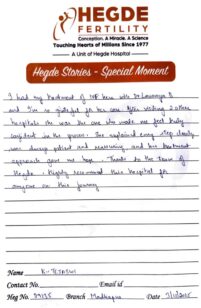 HEGDE
FERTILITY
Conception. A Miracle. A Science
Touching Hearts of Millions Since 1977
A Unit of Hegde Hospital
Hegde Stories - Special Moment
I had my treatment of IVF here with Dr
and I'm so grateful for her care After visiting 2 other
hospitals she was the one who made me feel truly
confident in the process. She explained every step clearly
was always patient and reassuring and her treatment
approach gave me hope. Thanks to the team of
Hegde I highly recommend this hospital for
anyone on this journey
Name K. TEJASWI
Contact No. Email id
Reg No. Branch Madhapur Date